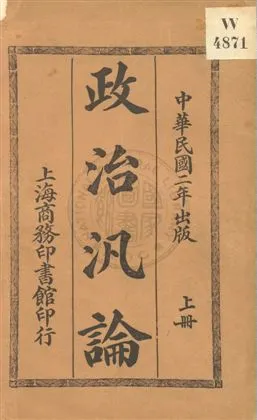 W
4871
中華民國二年出版
上冊
政治汎論
上海商務印書館印行